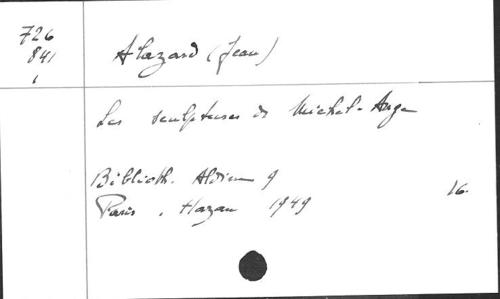 726
841
1
Alazard (Jean)
Les sculptures de Michel-Ange
Biblioth. Aldine 9
Paris, Hazan 1949
16.